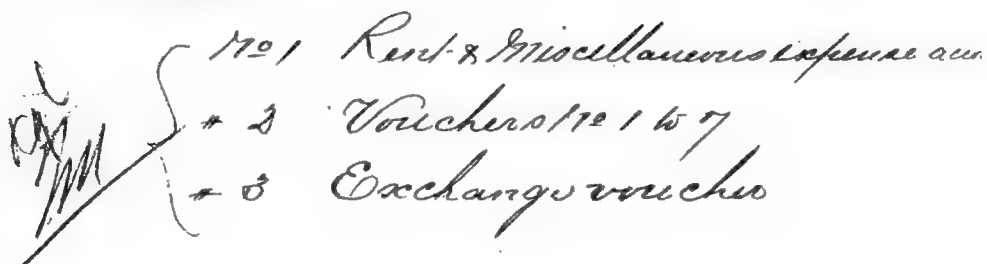 No 1 Rent & Miscellaneous expense acct.
# 2 Vouchers No 1 to 7
# 3 Exchange voucher